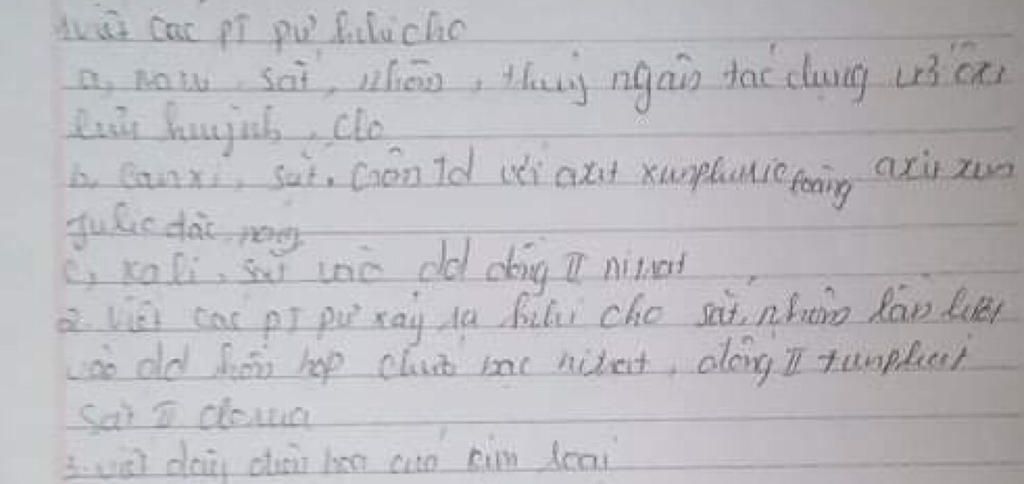 các PT pư khi cho
a, sắt, nhôm, thuỷ ngân tác dụng với oxi
lưu huỳnh, clo
b, canxi, sắt, td với axit xunphuric loãng axit xun
đặc nóng
c, kali, sắt vào dd đồng II nitrat
2. viết các PT pư xảy ra khi cho sắt, nhôm lần lượt
vào dd hỗn hợp chứa bạc nitrat, đồng II sunphat
sắt II clorua
3. viết dãy điện hoá của kim loại